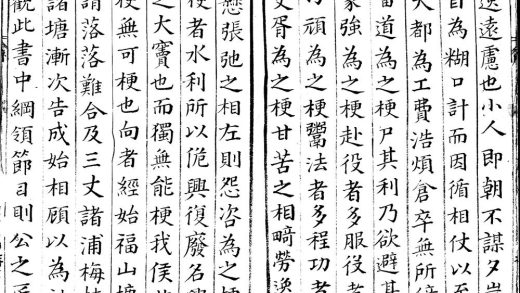 遠慮也小人即朝不謀夕
自為糊口計而因循相仗以至
大都為工費浩煩倉卒無所
道為之梗尸其利乃欲避其
家強為之梗赴役者多服役者
頑為之梗鬻法者多程功者
胥為之梗甘苦之相畸勞逸
懸張弛之相左則怨咨為之梗
使者水利所以佹興復廢名
之大竇也而獨無能梗我侯
梗無可梗也向者經始福山塘
謂落落難合及三丈諸浦梅
諸塘漸次告成始相顧以為
觀此書中綱領節目則公之